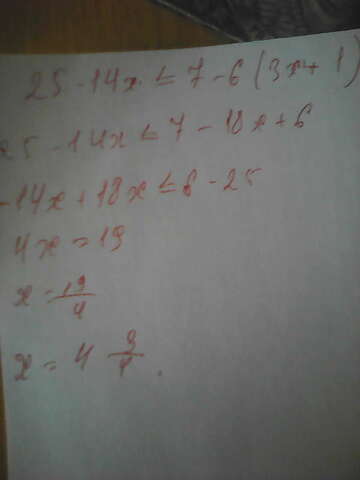 25 - 14x ≤ 7 - 6 (3x + 1)
25 - 14x ≤ 7 - 18x + 6
-14x + 18x ≤ 6 - 25
4x = 19
x = 19/4
x = 4 3/4.